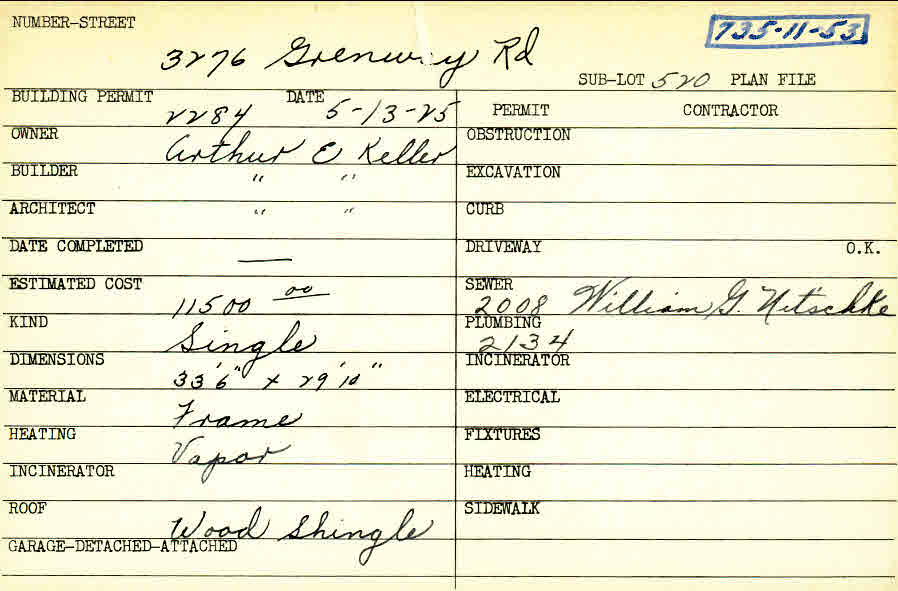 NUMBER-STREET
735-11-53
3276 Grenway Rd
SUB-LOT 520 PLAN FILE
BUILDING PERMIT 2284 DATE 5-13-25
PERMIT CONTRACTOR
OWNER Arthur E Keller
OBSTRUCTION
BUILDER " "
EXCAVATION
ARCHITECT " "
CURB
DATE COMPLETED —
DRIVEWAY O.K.
ESTIMATED COST 11500 00
SEWER 2008 William G. Nitschke
KIND Single
PLUMBING 2134
DIMENSIONS 33'6" x 29'10"
INCINERATOR
MATERIAL Frame
ELECTRICAL
HEATING Vapor
FIXTURES
INCINERATOR
HEATING
ROOF Wood Shingle
SIDEWALK
GARAGE-DETACHED-ATTACHED